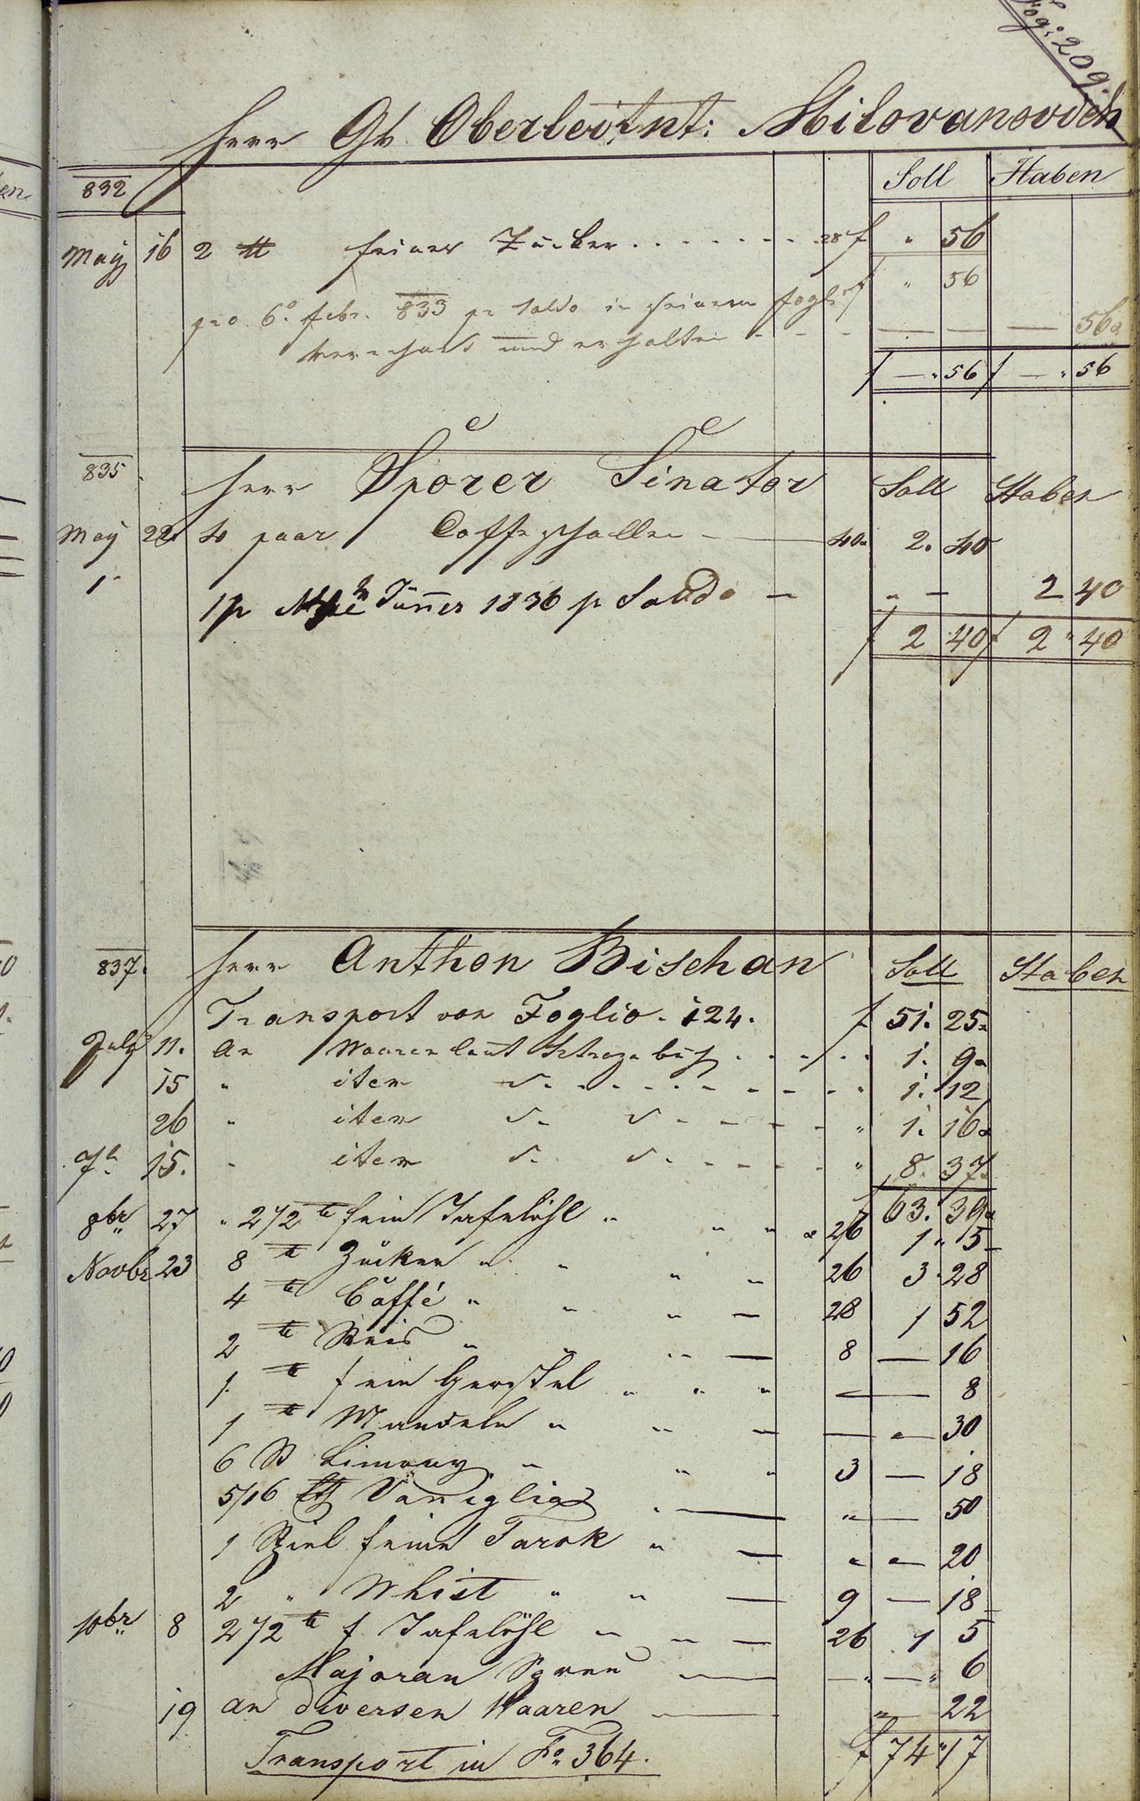 Fog: 209.
Herr Gb Oberleitnt: Milovanovich
832 Soll Haben
May 16 2 ℔ feiner Zucker . . . . . . . 28 f " 56
" 56
pro 6º febr. 833 pr Saldo in seinem foglio
verrechnet und erhalten - - - — — — 56
f — " 56 f — " 56
835 Herr Sporer Senator Soll Haben
May 22 4 paar Caffeschallen — 40 2. 40
1p Jänner 1836 p Saldo — " — 2 40
f 2 40 f 2 " 40
837. Herr Anthon Bischan Soll Haben
Transport von Foglio. 124. f 51. 25
July 11. an Waaren laut Strazabuch . . . . 1. 9
15 " item 1. 12
26 " item 1. 16
7br 15. " item " 8. 37
f 63. 39
8br 27 " 2 1/2 ℔ fein Tafelöhl " " " a 26 1 " 5
Novbr 23 8 ℔ Zucker " " " " 26 3 " 28
4 ℔ Caffé " " " — 28 1 52
2 ℔ Reis " " " — 8 — 16
1 ℔ fein Gerstel " " " — — 8
1 ℔ Mandeln " " — — " 30
6 St Limony " " " 3 — 18
5/16 ℔ Vaniglia " — " — 50
1 Spiel feine Tarok " — " " 20
2 " Whist " " — 9 — 18
10br 8 2 1/2 ℔ f. Tafelöhl " " — 26 1 5
Majoran — — — " 6
19 an diversen Waaren — " 22
Transport in Fo 364. f 74 " 17